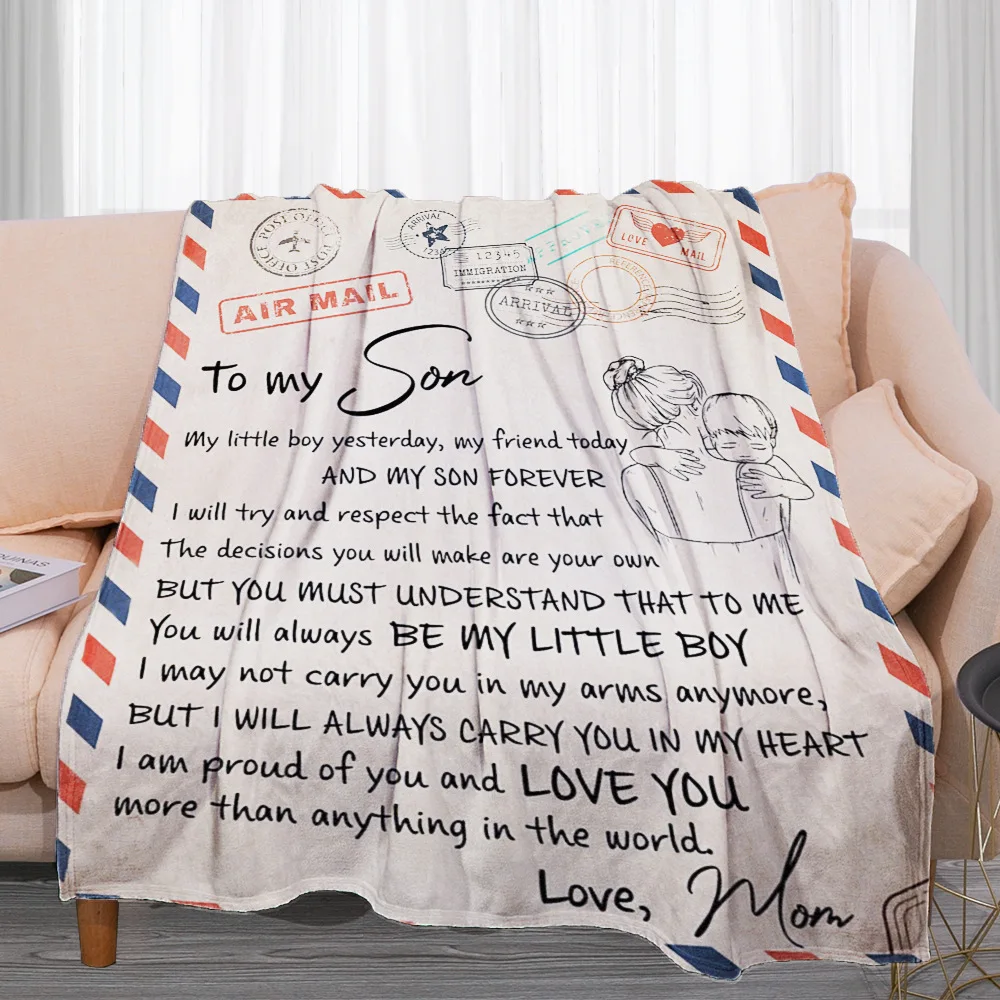 POST OFFICE POST OFFICE
ARRIVAL
123
12345
IMMIGRATION
ARRIVAL
LOVE MAIL
AIR MAIL
To my Son
My little boy yesterday, my friend today
AND MY SON FOREVER
I will try and respect the fact that
The decisions you will make are your own
BUT YOU MUST UNDERSTAND THAT TO ME
You will always BE MY LITTLE BOY
I may not carry you in my arms anymore,
BUT I WILL ALWAYS CARRY YOU IN MY HEART
I am proud of you and LOVE YOU
more than anything in the world.
Love, Mom